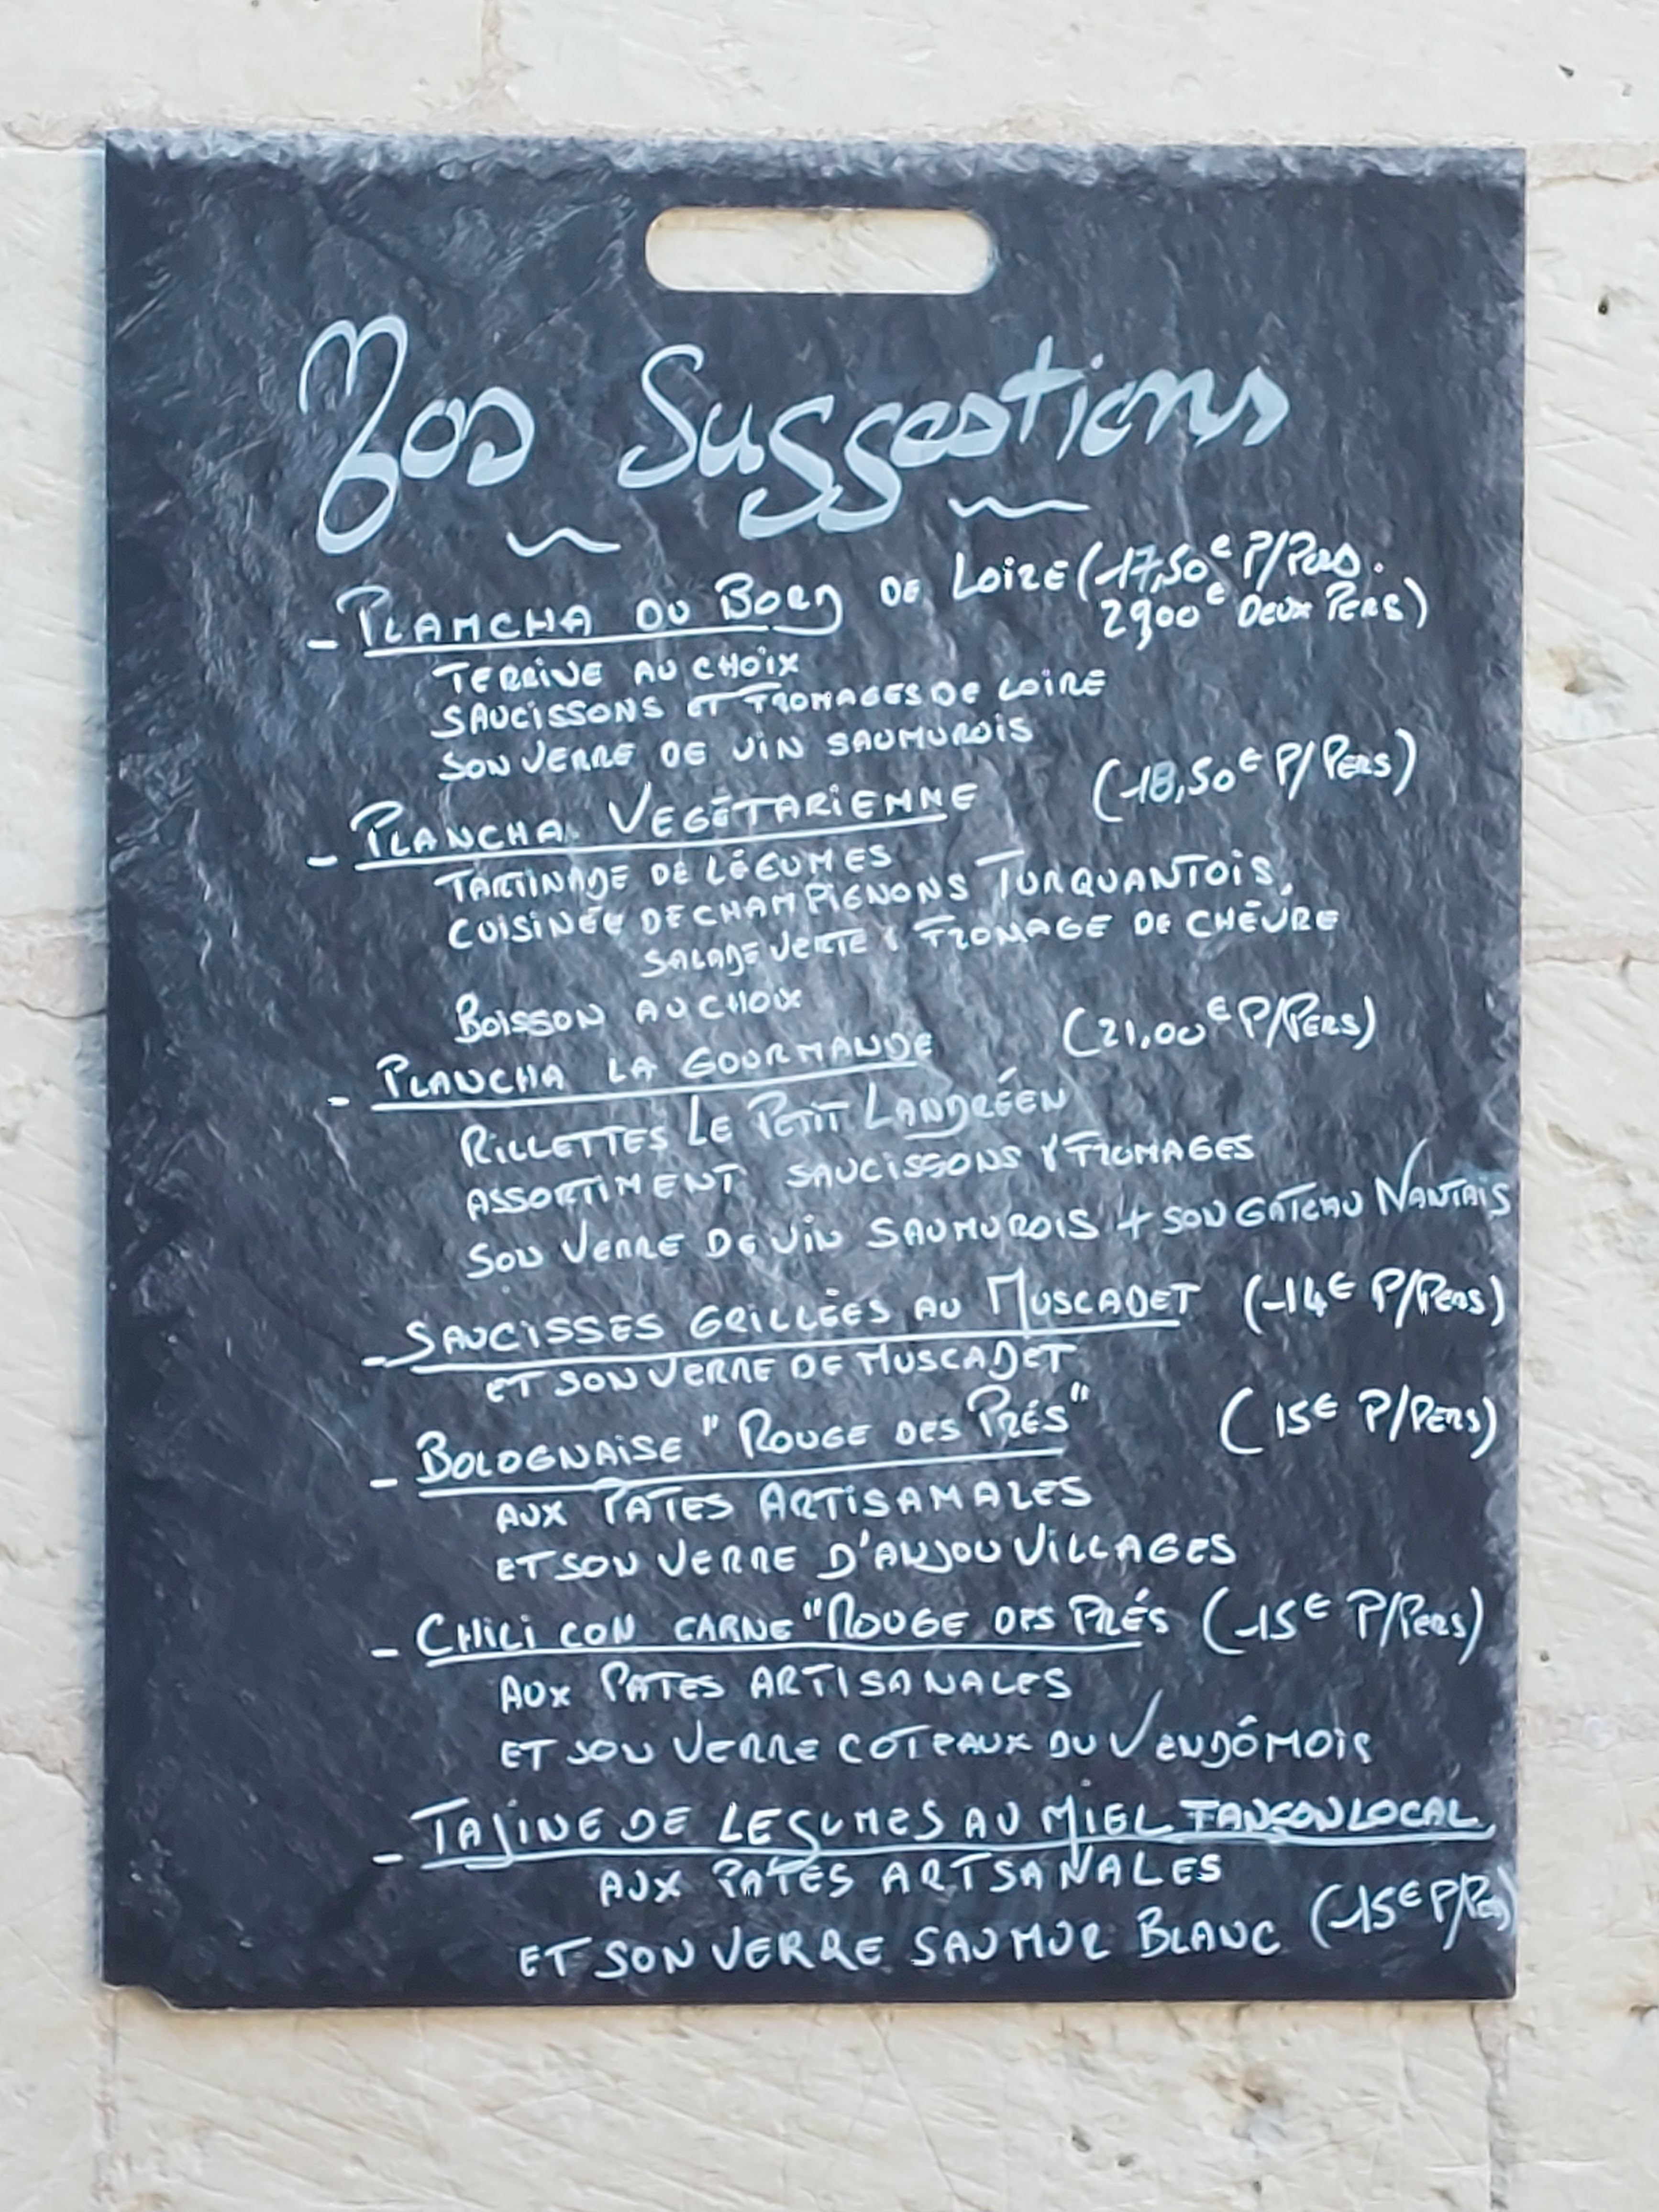 Nos Suggestions
- PLANCHA DU BORD DE LOIRE (17,50€ P/PERS.
2900€ DEUX PERS)
TERRINE AU CHOIX
SAUCISSONS ET FROMAGES DE LOIRE
SON VERRE DE VIN SAUMUROIS
- PLANCHA VEGÉTARIENNE (18,50€ P/PERS)
TARTINADE DE LÉGUMES
CUISINÉE DE CHAMPIGNONS TURQUANTOIS,
SALADE VERTE & FROMAGE DE CHÈVRE
BOISSON AU CHOIX
- PLANCHA LA GOURMANDE (21,00€ P/PERS)
RILLETTES LE PETIT LANDRÉEN
ASSORTIMENT SAUCISSONS & FROMAGES
SON VERRE DE VIN SAUMUROIS + SON GATEAU NANTAIS
- SAUCISSES GRILLÉES AU MUSCADET (14€ P/PERS)
ET SON VERRE DE MUSCADET
- BOLOGNAISE "ROUGE DES PRÉS" (15€ P/PERS)
AUX PATES ARTISANALES
ET SON VERRE D'ANJOU VILLAGES
- CHILI CON CARNE "ROUGE DES PRÉS (15€ P/PERS)
AUX PATES ARTISANALES
ET SON VERRE COTEAUX DU VENDÔMOIS
- TAJINE DE LEGUMES AU MIEL LOCAL
AUX PATES ARTSANALES
ET SON VERRE SAUMUR BLANC (15€ P/PERS)